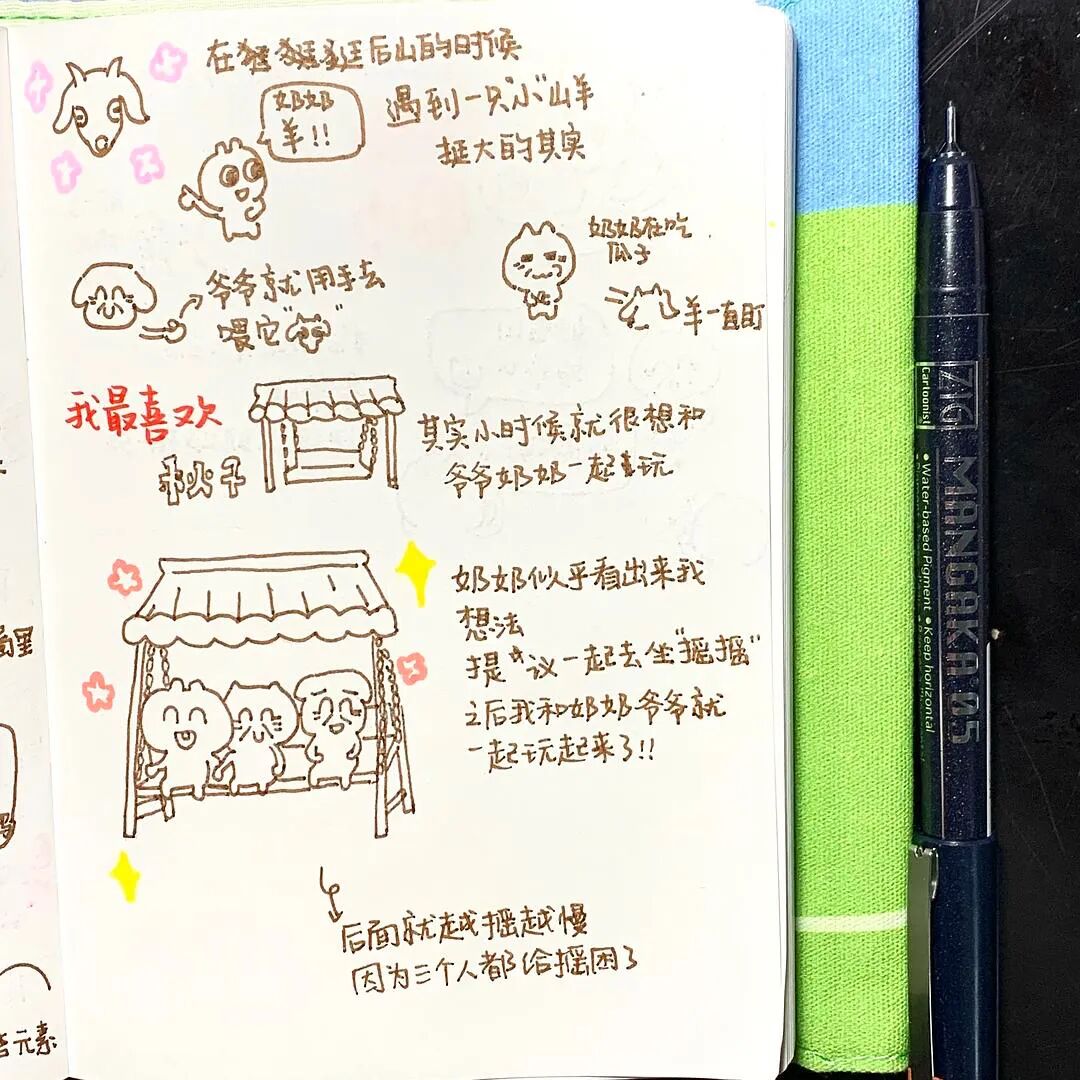 在逛逛逛后山的时候
奶奶
羊!!
遇到一只小山羊
挺大的其实
奶奶在吃
瓜子
羊一直盯
爷爷就用手去
喂它“ ”
我最喜欢
秋千
其实小时候就很想和
爷爷奶奶一起玩
奶奶似乎看出来我
想法
提议一起去坐“摇摇”
之后我和奶奶爷爷就
一起玩起来了!!
后面就越摇越慢
因为三个人都给摇困了
元素
ZIG
Cartoonist
MANGAKA 05
• Water-based Pigment • Keep horizontal